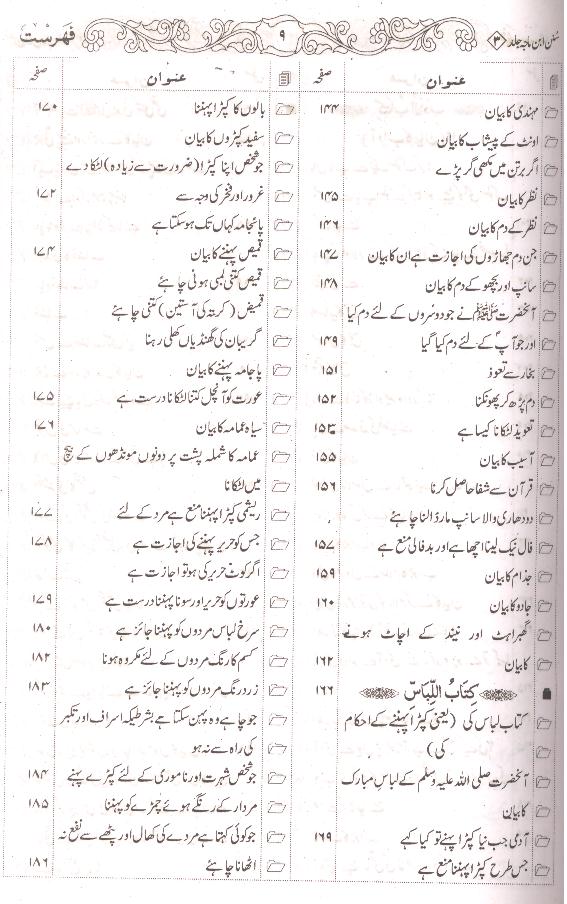 سنن ابن ماجہ جلد ۳
۹
فہرست
عنوان صفحہ
مہندی کا بیان ۱۴۴
اونٹ کے پیشاب کا بیان
اگر برتن میں مکھی گر پڑے
نظر کا بیان ۱۴۵
نظر کے دم کا بیان ۱۴۶
جن دم جھاڑوں کی اجازت ہے ان کا بیان ۱۴۷
سانپ اور بچھو کے دم کا بیان ۱۴۸
آنحضرت ﷺ نے جو دوسروں کے لئے دم کیا
اور جو آپؐ کے لئے دم کیا گیا ۱۴۹
بخار سے تعوذ ۱۵۱
دم پڑھ کر پھونکنا ۱۵۲
تعویذ لٹکانا کیسا ہے ۱۵۳
آسیب کا بیان ۱۵۵
قرآن سے شفا حاصل کرنا ۱۵۶
دو دھاری والا سانپ مار ڈالنا چاہئے
فال نیک لینا اچھا ہے اور بدفالی منع ہے ۱۵۷
جذام کا بیان ۱۵۹
جادو کا بیان ۱۶۰
گھبراہٹ اور نیند کے اچاٹ ہونے
کا بیان ۱۶۲
کِتَابُ اللِّبَاسِ ۱۶۶
کتاب لباس کی (یعنی کپڑا پہننے کے احکام
کی)
آنحضرت صلی اللہ علیہ وسلم کے لباس مبارک
کا بیان
آدمی جب نیا کپڑا پہنے تو کیا کہے ۱۶۹
جس طرح کپڑا پہننا منع ہے
عنوان صفحہ
بالوں کا کپڑا پہننا ۱۷۰
سفید کپڑوں کا بیان
جو شخص اپنا کپڑا (ضرورت سے زیادہ) لٹکا دے
غرور اور فخر کی وجہ سے ۱۷۲
پائجامہ کہاں تک ہو سکتا ہے
قمیص پہننے کا بیان ۱۷۴
قمیص کتنی لمبی ہونی چاہئے
قمیض (کرتہ کی آستین) کتنی چاہئے
گریبان کی گھنڈیاں کھلی رہنا
پاجامہ پہننے کا بیان
عورت کو آنچل کتنا لٹکانا درست ہے ۱۷۵
سیاہ عمامہ کا بیان ۱۷۶
عمامہ کا شملہ پشت پر دونوں مونڈھوں کے بیچ
میں لٹکانا
ریشمی کپڑا پہننا منع ہے مرد کے لئے ۱۷۷
جس کو حریر پہننے کی اجازت ہے ۱۷۸
اگر گوٹ حریر کی ہو تو اجازت ہے
عورتوں کو حریر اور سونا پہننا درست ہے ۱۷۹
سرخ لباس مردوں کو پہننا جائز ہے ۱۸۰
کسم کا رنگ مردوں کے لئے مکروہ ہونا ۱۸۲
زرد رنگ مردوں کو پہننا جائز ہے ۱۸۳
جو چاہے وہ پہن سکتا ہے بشرطیکہ اسراف اور تکبر
کی راہ سے نہ ہو
جو شخص شہرت اور ناموری کے لئے کپڑے پہنے ۱۸۴
مردار کے رنگے ہوئے چمڑے کو پہننا ۱۸۵
جو کوئی کہتا ہے مردے کی کھال اور پٹھے سے نفع نہ
اٹھانا چاہئے ۱۸۶